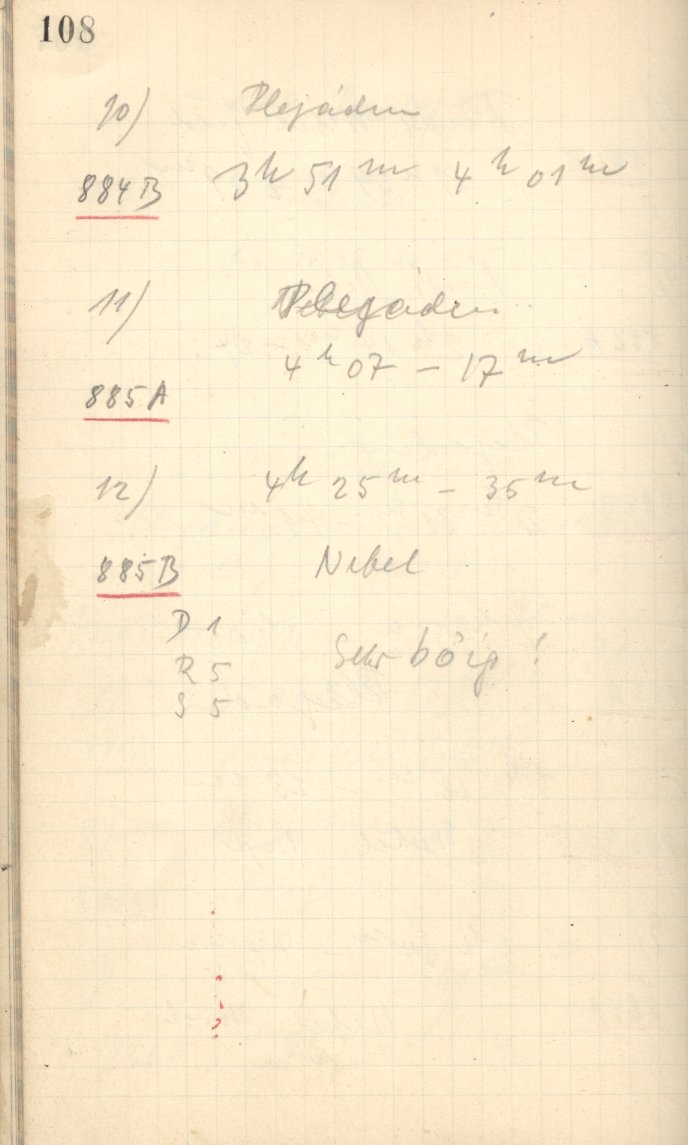 108
10) Plejaden
884B 3h 51m 4h 01m
11) Plejaden
4h 07 - 17m
885A
12) 4h 25m - 35m
885B Nebel
D 1
R 5 Sehr böig!
S 5